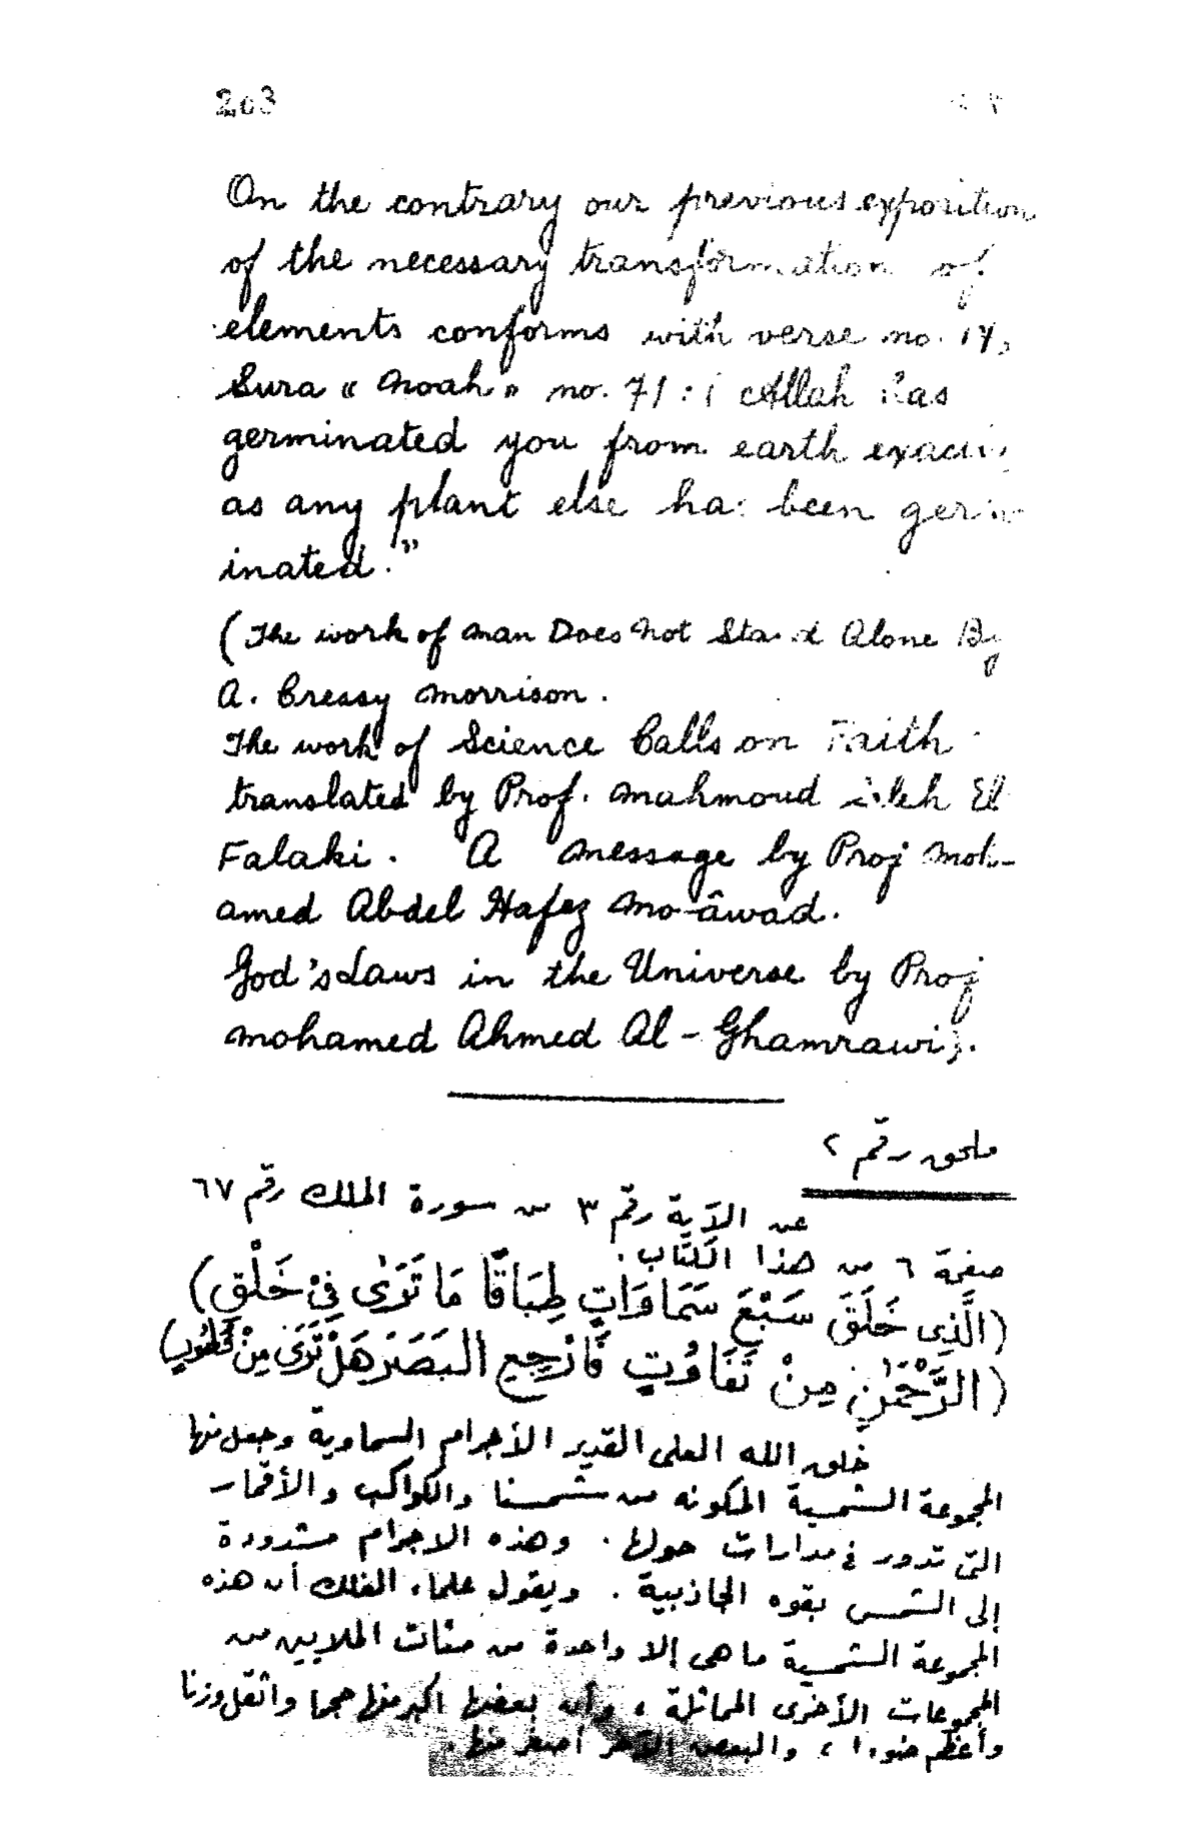 203
On the contrary our previous exposition
of the necessary transformation of
elements conforms with verse no. 17,
Sura « Noah » no. 71 : Allah has
germinated you from earth
as any plant else has been germ
inated."
(The work of Man Does Not Stand Alone By
A. Cressy Morrison.
The work of Science Calls on Faith
translated by Prof. Mahmoud Saleh El
Falaki. A message by Prof Moh-
amed Abdel Hafez Mo-âwad.
God's Laws in the Universe by Prof
Mohamed Ahmed Al-Ghamrawi).
ملحق رقم ٢
عن الآية رقم ٣ من سورة الملك رقم ٦٧
صفحة ٦ من هذا الكتاب.
(الَّذِى خَلَقَ سَبْعَ سَمَاوَاتٍ طِبَاقًا مَا تَرَى فِىْ خَلْقِ)
(الرَّحْمٰنِ مِنْ تَفَاوُتٍ فَارْجِعِ البَصَرَ هَلْ تَرَى مِنْ فُطُورٍ)
خلق الله العلى القدير الأجرام السماوية وجعل منها
المجموعة الشمسية المكونه من شمسنا والكواكب والأقمار
التى تدور فى مدارات حولها . وهذه الاجرام مشدودة
إلى الشمس بقوه الجاذبية . ويقول علماء الفلك أن هذه
المجموعة الشمسية ما هى إلا واحدة من مئات الملايين من
المجموعات الأخرى المماثلة ، وأن بعضها اكبر منها حجما واثقل وزنا
وأعظم ضوءا ، والبعض الآخر أصغر منها .